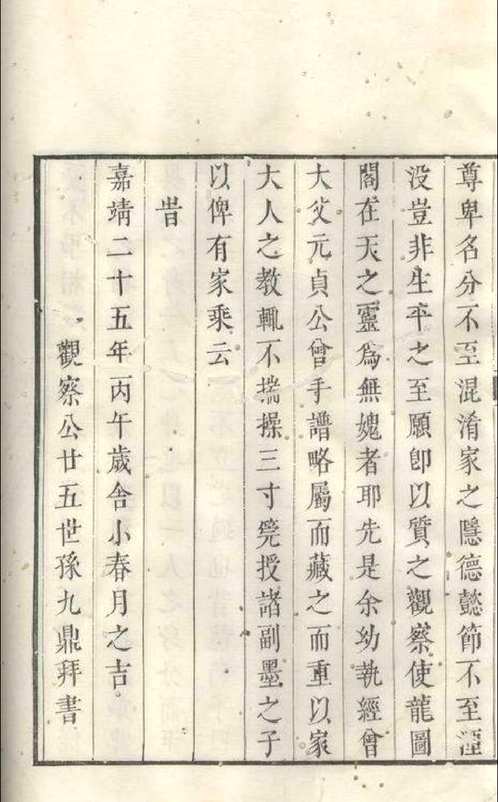 尊卑名分不至混淆家之隱德懿節不至湮
没豈非生平之至願卽以質之觀察使龍圖
閣在天之靈為無媿者耶先是余幼執經曾
大父元貞公曾手譜略屬而藏之而重以家
大人之教輒不揣操三寸筦授諸副墨之子
以俾有家乘云
旹
嘉靖二十五年丙午歲舍小春月之吉
觀察公廿五世孫九鼎拜書